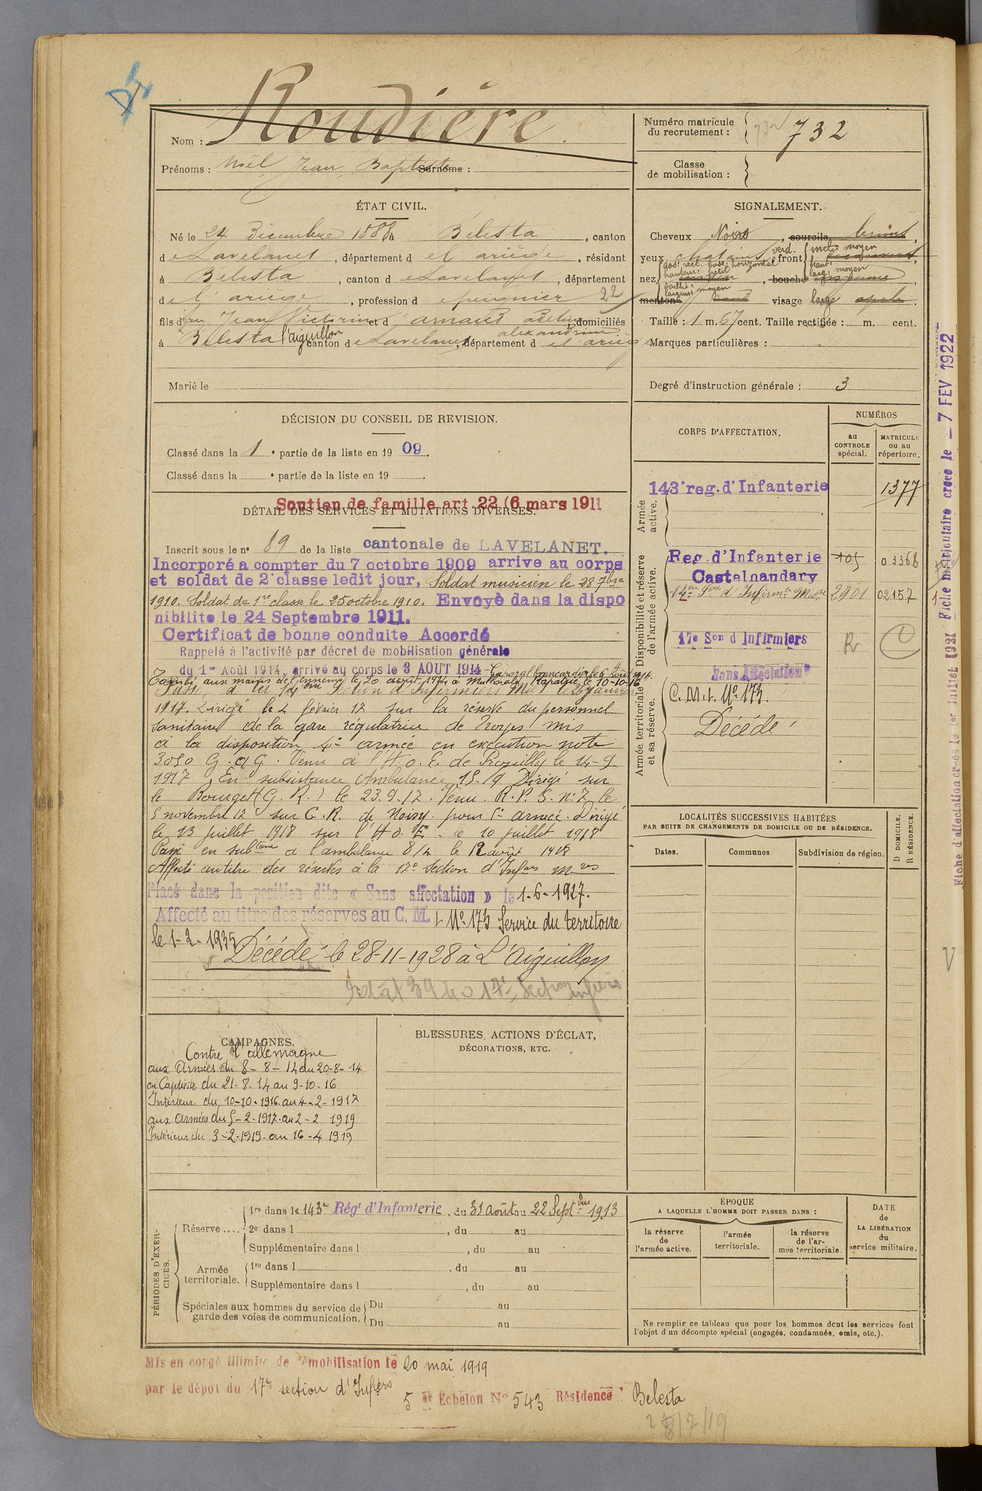 Nom : Roudière
Prénoms : Noël Jean Baptiste Surnoms :
Numéro matricule
du recrutement : 732
Classe
de mobilisation :
ÉTAT CIVIL.
Né le 24 Décembre 1888 à Bélesta, canton
de Lavelanet, département d el ariège, résidant
à Bélesta, canton d Lavelanet, département
d el ariège, profession d epicier 22
fils d feu Jean Victorin et d arnaud adeline alexandrine domiciliés
à Bélesta l'aiguillon canton de Lavelanet, département d el ariège
Marié le
SIGNALEMENT.
Cheveux Noirs, sourcils
yeux chatains verd. front incl: moyen
nez dos: rect. base: horizontal
hauteur: petit
saillie:
largeur: moyen
haut:
larg: moyen
bouche
menton visage large
Taille : 1 m. 67 cent. Taille rectifiée : m. cent.
Marques particulières :
Degré d'instruction générale : 3
DÉCISION DU CONSEIL DE REVISION.
Classé dans la 1e partie de la liste en 1909.
Classé dans la e partie de la liste en 19 .
Soutien de famille art 22 (6 mars 1911
DÉTAIL DES SERVICES ET MUTATIONS DIVERSES.
Inscrit sous le n° 89 de la liste cantonale de LAVELANET.
Incorporé a compter du 7 octobre 1909 arrive au corps
et soldat de 2e classe ledit jour, Soldat musicien le 28 7bre
1910. Soldat de 1re classe le 25 octobre 1910. Envoyé dans la dispo
nibilite le 24 Septembre 1911.
Certificat de bonne conduite Accordé
Rappelé à l'activité par décret de mobilisation générale
du 1er Août 1914, arrivé au corps le 3 AOUT 1914
aux mains de l'ennemi le 20 août 1914 à Rapatrié le 10-10-16
Passé à la 17ème Section d'Infirmiers Mres le janvier
1917. Dirigé le 2 février 17 sur la réserve du personnel
sanitaire de la gare régulatrice de Troyes mis
à la disposition 4e armée en exécution note
3050 G.Q.G. Venu à l'H.o.E. de Prouilly le 14-9
1917. En subsistance Ambulance 15/9 Dirigé sur
le Bourget (G.R.) le 23.9.17. Venu R.P.S. n°7 le
5 novembre 17 sur G.R. de Noisy pour 5e armée. Dirigé
le 13 juillet 1918 sur l'H.O.E. le 10 juillet 1918
Passé en subtance à l'ambulance 8/4 le 12 août 1918
Affecté au titre des réserves à la 17e section d'Infers mres
Placé dans la position dite « Sans affectation » le 1-6-1927.
Affecté au titre des réserves au C. M. t N° 173 Service du territoire
le 1-2-1935
Décédé le 28-11-1928 à L'Aiguillon
CORPS D'AFFECTATION.
NUMÉROS
au
CONTROLE
spécial.
MATRICULE
ou au
répertoire.
Armée
active.
143e reg. d'Infanterie 1377
Disponibilité et réserve
de l'armée active.
Reg. d'Infanterie 105 03368
Castelnaudary
2901 02157
17e Son d Infirmiers
Armée territoriale
et sa réserve.
Sans Affectation
C. M. t. N° 173.
Décédé
LOCALITÉS SUCCESSIVES HABITÉES
PAR SUITE DE CHANGEMENTS DE DOMICILE OU DE RÉSIDENCE.
Dates.
Communes
Subdivision de région.
D DOMICILE.
R RÉSIDENCE.
CAMPAGNES.
Contre l'allemagne
aux Armées du 8-8-14 au 20-8-14
en Captivité du 21.8.14 au 9-10-16
Intérieur du 10-10-1916 au 4-2-1917
aux Armées du 5-2-1917 au 2-2 1919
Intérieur du 3-2-1919 au 16-4 1919
BLESSURES, ACTIONS D'ÉCLAT,
DÉCORATIONS, ETC.
PÉRIODES D'EXER-
CICES.
Réserve ....
1re dans le 143e Régt d'Infanterie, du 31 août au 22 Septbre 1913
2e dans l , du au
Supplémentaire dans l , du au
Armée
territoriale.
1re dans l , du au
Supplémentaire dans l , du au
Spéciales aux hommes du service de
garde des voies de communication.
Du au
Du au
ÉPOQUE
A LAQUELLE L'HOMME DOIT PASSER DANS :
la réserve
de
l'armée active.
l'armée
territoriale.
la réserve
de l'ar-
mée territoriale.
DATE
de
LA LIBÉRATION
du
service militaire.
Ne remplir ce tableau que pour les hommes dont les services font
l'objet d'un décompte spécial (engagés, condamnés, omis, etc.).
Mis en congé illimité de démobilisation le 20 mai 1919
par le dépot du 17e section d'Infers
5 et Echelon N° 543 Résidence : Belesta
Fiche matriculaire créée le - 7 FEV 1922
Fiche d'affectation créée le 1er Juillet 1921